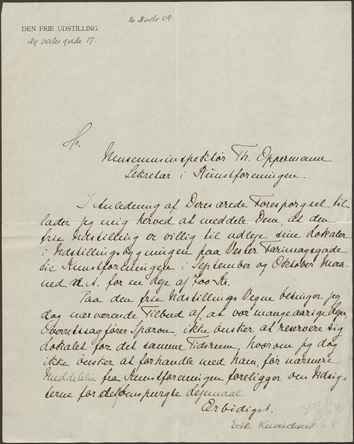 DEN FRIE UDSTILLING
Hr.
Museumsinspektør Th. Oppermann
Sekretær i Kunstforeningen.
I Anledning af Deres ærede Forespørgsel til-
lader jeg mig herved at meddele Dem at den
frie Udstilling er villig til udleje sine Lokaler
i Udstillingsbygningen paa Vester Farimagsgade
til Kunstforeningen i September og Oktober Maa-
ned d. A. for en Leje af 700 Kr.
Paa den frie Udstillings Vegne betinger jeg
dog nærværende Tilbud af at vor mangeaarige Lejer
Overretssagfører ikke ønsker at reservere sig
Lokalet for det samme Tidsrum, hvorom jeg dog
ikke ønsker at forhandle med ham, før nærmere
Meddelelse fra Kunstforeningen foreligger om Udsig-
terne for
Ærbødigst.